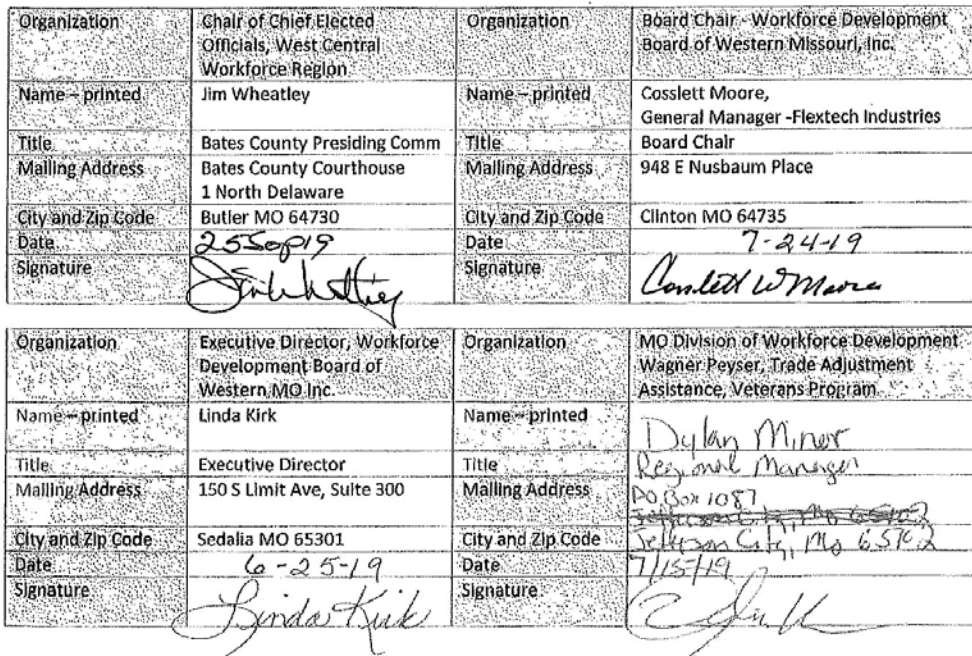 Organization Chair of Chief Elected Organization Board Chair - Workforce Development
Officials, West Central Board of Western Missouri, Inc.
Workforce Region
Name – printed Jim Wheatley Name – printed Cosslett Moore,
General Manager -Flextech Industries
Title Bates County Presiding Comm Title Board Chair
Mailing Address Bates County Courthouse Mailing Address 948 E Nusbaum Place
1 North Delaware
City and Zip Code Butler MO 64730 City and Zip Code Clinton MO 64735
Date 25Sep19 Date 7-24-19
Signature Signature Cosslett W Moore
Organization Executive Director, Workforce Organization MO Division of Workforce Development
Development Board of Wagner Peyser, Trade Adjustment
Western MO Inc. Assistance, Veterans Program
Name – printed Linda Kirk Name – printed Dylan Miner
Title Executive Director Title Regional Manager
Mailing Address 150 S Limit Ave, Suite 300 Mailing Address PO Box 1087
City and Zip Code Sedalia MO 65301 City and Zip Code Jefferson City, Mo 65102
Date 6-25-19 Date 7/15/19
Signature Linda Kirk Signature